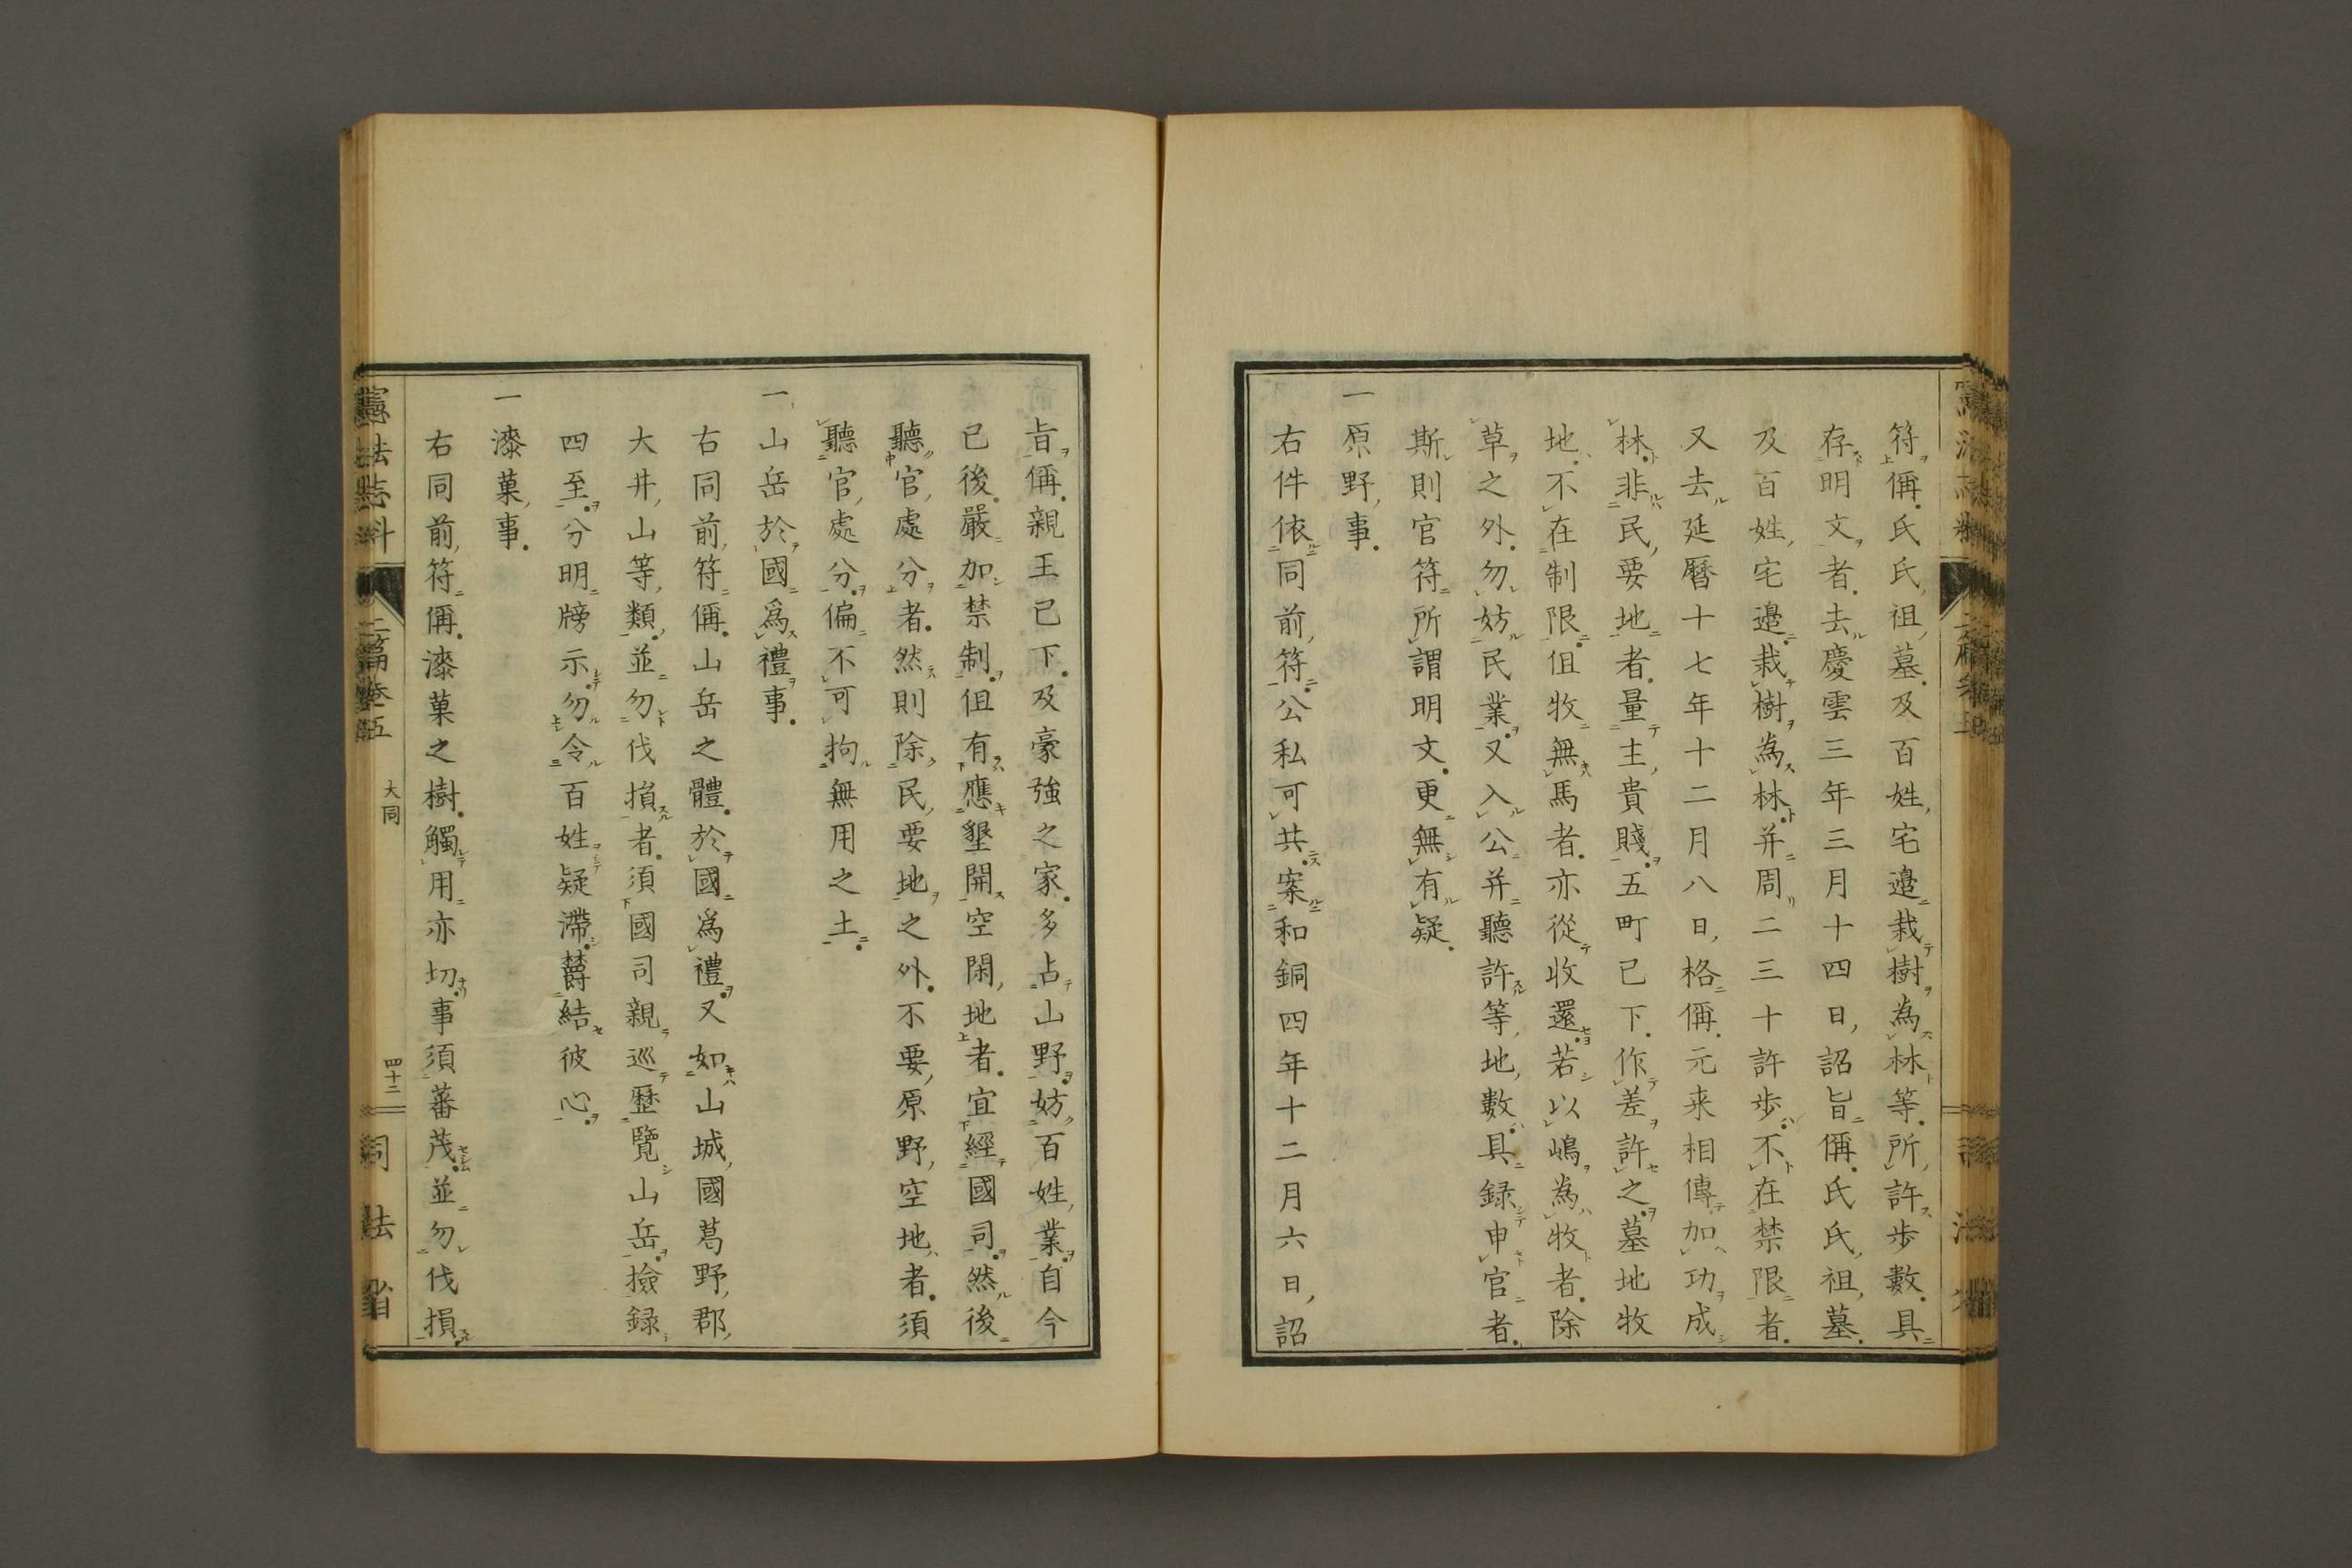 符偁氏氏祖墓及百姓宅邉栽樹為林等所許歩數具
存明文者去慶雲三年三月十四日詔旨偁氏氏祖墓
及百姓宅邉栽樹為林并周二三十許歩不在禁限者
又去延曆十七年十二月八日格偁元来相傳加功成
林非民要地者量主貴賤五町已下作差許之墓地牧
地不在制限但牧無馬者亦從收還若以嶋為牧者除
草之外勿妨民業又入公并聽許等地數具録申官者
斯則官符所謂明文更無有疑
一原野事
右件依同前符公私可共案和銅四年十二月六日詔
旨偁親王已下及豪強之家多占山野妨百姓業自今
已後嚴加禁制但有應墾開空閑地者宜經國司然後
聽官處分者然則除民要地之外不要原野空地者須
聽官處分偏不可拘無用之土
一山岳於國爲禮事
右同前符偁山岳之體於國爲禮又如山城國葛野郡
大井山等類並勿伐損者須國司親巡歷覽山岳撿録
四至分明牓示勿令百姓疑滯欝結彼心
一漆菓事
右同前符偁漆菓之樹觸用亦切事須蕃茂並勿伐損
憲法志料
二篇卷五
大同
四十二
司法省